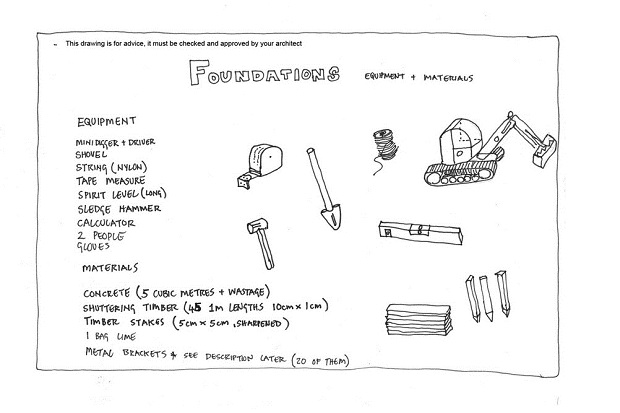 - This drawing is for advice, it must be checked and approved by your architect
FOUNDATIONS EQUIPMENT + MATERIALS
EQUIPMENT
MINIDIGGER + DRIVER
SHOVEL
STRING (NYLON)
TAPE MEASURE
SPIRIT LEVEL (LONG)
SLEDGE HAMMER
CALCULATOR
2 PEOPLE
GLOVES
MATERIALS
CONCRETE (5 CUBIC METRES + WASTAGE)
SHUTTERING TIMBER (45 1M LENGTHS 10cm x 1cm)
TIMBER STAKES (5cm x 5cm, SHARPENED)
1 BAG LIME
METAL BRACKETS & SEE DESCRIPTION LATER (20 OF THEM)